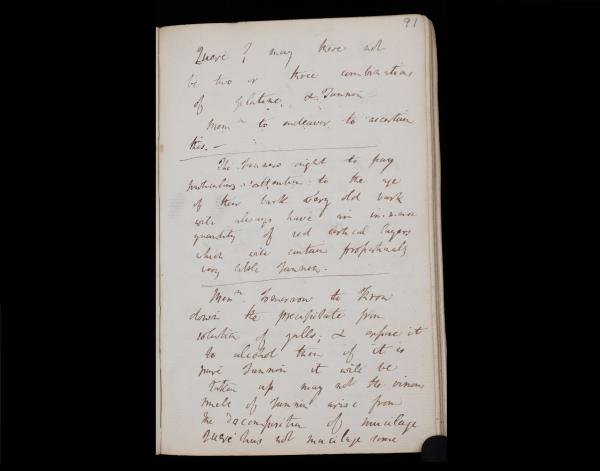 91
Quere? may there not
be two or three combinations
of Gelatine & Tannin
Mem^m to endeavor to ascertain
this. -
The Tanners ought to pay
particular attention to the age
of their bark Very old bark
will always have an increase
quantity of red cortical layers
which will contain proportionally
very little Tannin.
Mem^m Tomorrow to throw
down the precipitate from
solution of galls, & expose it
to alcohol then if it is
pure Tannin it will be
taken up may not the vinous
smell of Tannin arise from
the decomposition of mucilage
Quere has not mucilage some